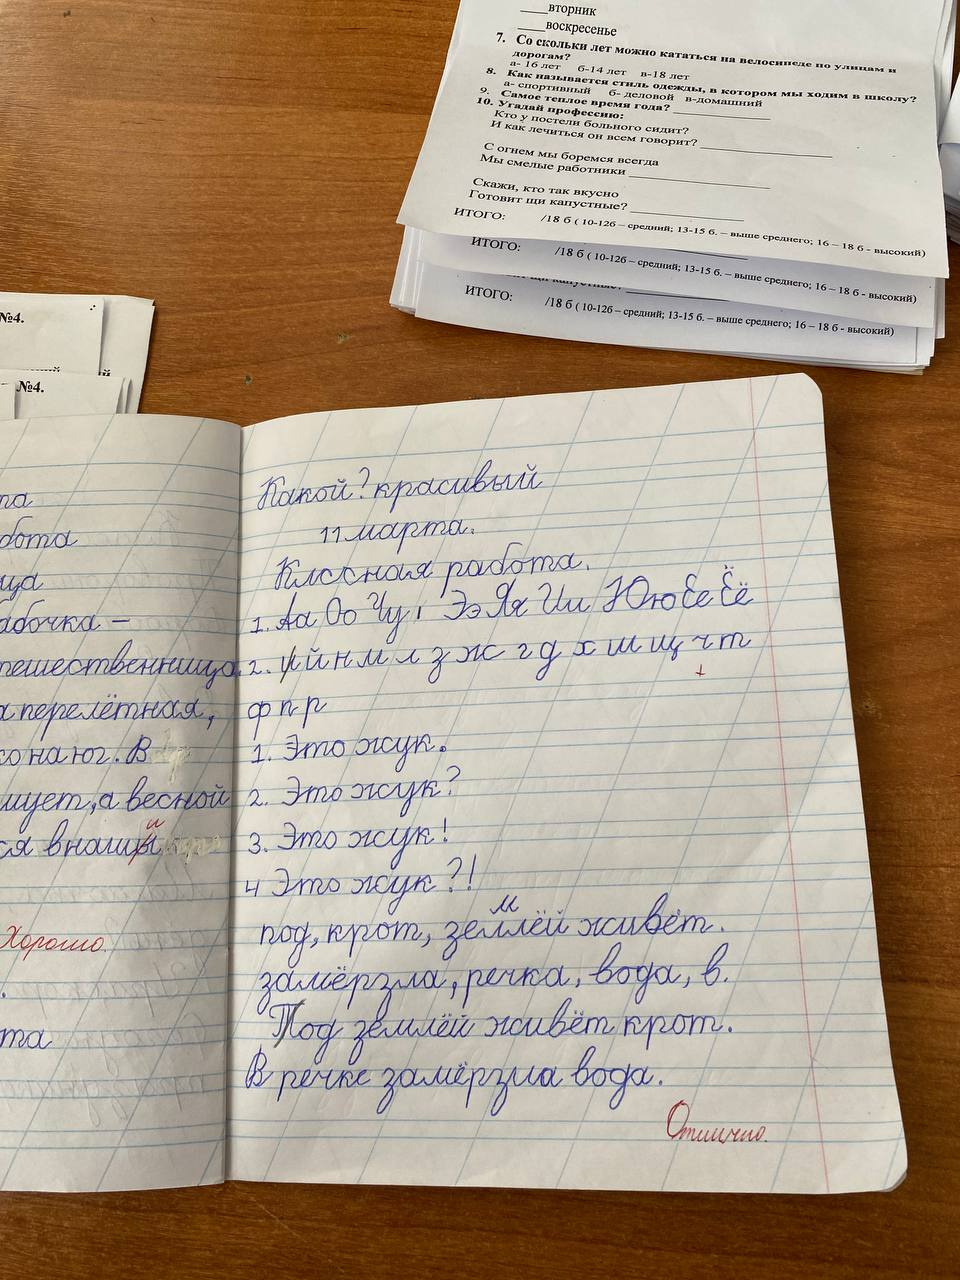 вторник
воскресенье
7. Со скольки лет можно кататься на велосипеде по улицам и
дорогам?
а- 16 лет б-14 лет в-18 лет
8. Как называется стиль одежды, в котором мы ходим в школу?
а- спортивный б- деловой в-домашний
9. Самое теплое время года?
10. Угадай профессию:
Кто у постели больного сидит?
И как лечиться он всем говорит?
С огнем мы боремся всегда
Мы смелые работники
Скажи, кто так вкусно
Готовит щи капустные?
ИТОГО: /18 б ( 10-12б – средний; 13-15 б. – выше среднего; 16 – 18 б - высокий)
ИТОГО: /18 б ( 10-12б – средний; 13-15 б. – выше среднего; 16 – 18 б - высокий)
ИТОГО: /18 б ( 10-12б – средний; 13-15 б. – выше среднего; 16 – 18 б - высокий)
№4.
№4.
та
бота
ца
абочка –
пешественница.
а перелётная,
на юг. В
а весной
ся в наши
Хорошо.
та
Какой? красивый
11 марта.
Классная работа.
1. Аа Оо Уу Ээ Яя Ии Юю Ее Ёё
2. й н м л з ж г д х ш щ ч т
ф п р
1. Это жук.
2. Это жук?
3. Это жук!
4 Это жук?!
под, крот, землёй живёт.
замёрзла, речка, вода, в.
Под землёй живёт крот.
В речке замёрзла вода.
Отлично.